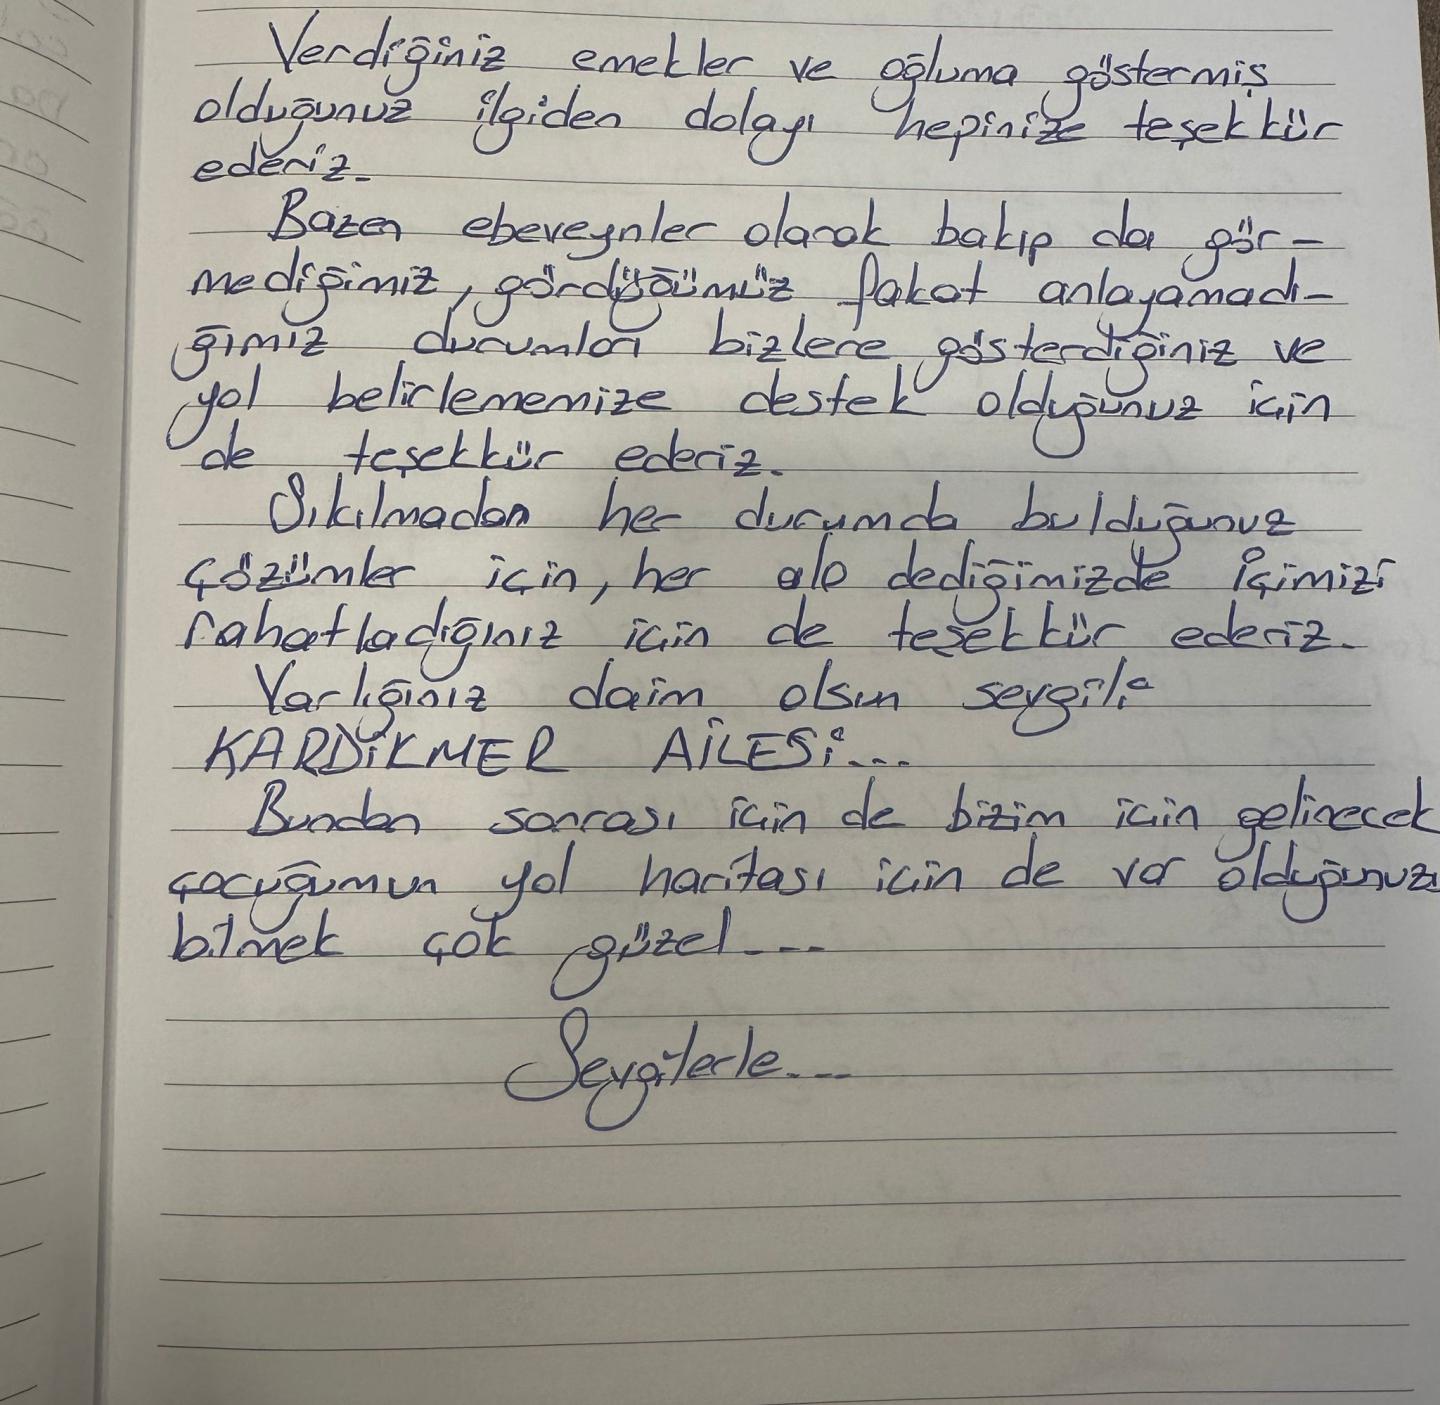 Verdiğiniz emekler ve oğluma göstermiş
olduğunuz ilgiden dolayı hepinize teşekkür
ederiz.
Bazen ebeveynler olarak bakıp da gör-
mediğimiz, gördüğümüz fakat anlayamadı-
ğımız durumları bizlere gösterdiğiniz ve
yol belirlememize destek olduğunuz için
de teşekkür ederiz.
Sıkılmadan her durumda bulduğunuz
çözümler için, her alo dediğimizde içimizi
rahatladığınız için de teşekkür ederiz.
Varlığınız daim olsun sevgili
KARDİKMER AİLESİ...
Bundan sonrası için de bizim için gelinecek
çocuğumun yol haritası için de var olduğunuzu
bilmek çok güzel...
Sevgilerle...